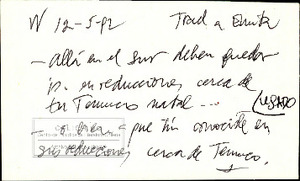 W 12-5-92 Trad a Emita
- Allí en el sur deben quedar
en reducciones cerca de
tu Temuco natal ...
(USADO
- o bien "que tú conociste en
sus reducciones cerca de Temuco.